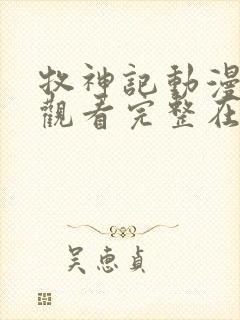 牧神記動漫
觀看完整在
吴惠貞